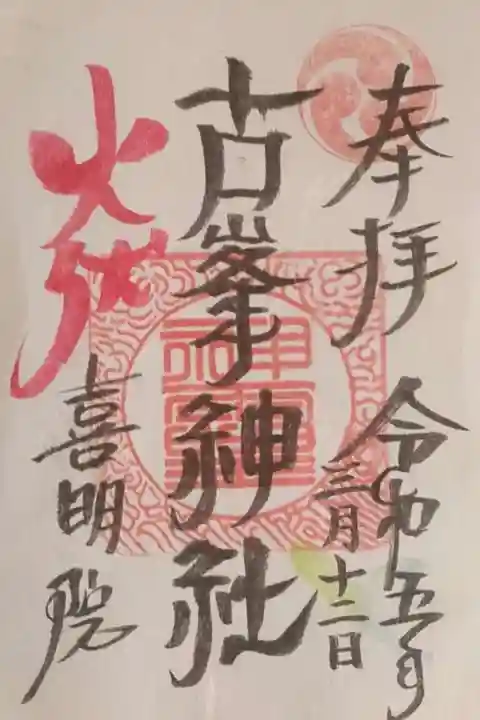 奉拝
令和五年
三月十二日
古峯神社
火伏
喜明院